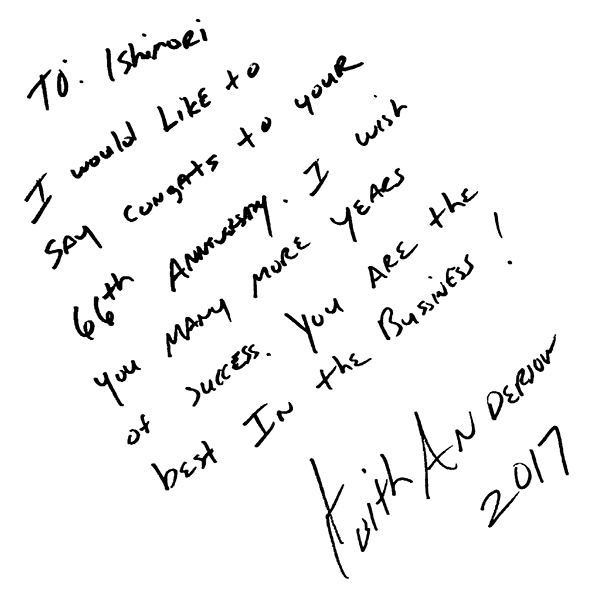 TO: Ishimori
I would LIKE to
SAY CONGATS to YOUR
66th ANNIVERSARY. I wish
YOU MANY MORE YEARS
of SUCCESS. YOU ARE the
best IN the BUSSINESS!
Keith ANDERSON
2017